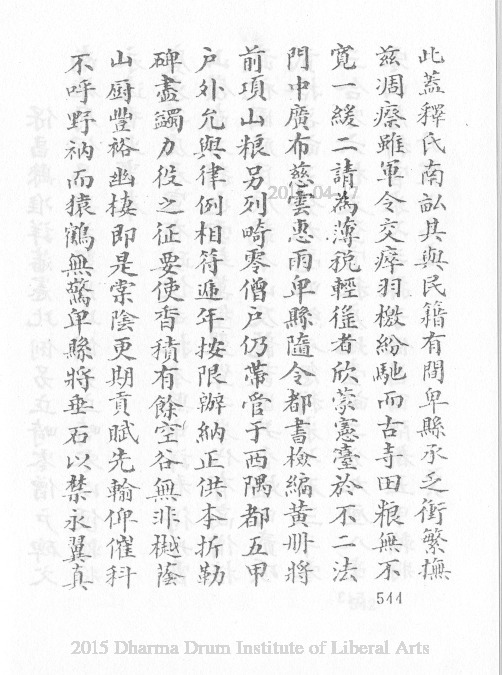 此蓋釋氏南畝其與民籍有間卑縣承乏衝繁撫
茲凋瘵雖軍令交瘁羽檄紛馳而古寺田粮無不
寛一緩二請為薄稅輕徭者欣蒙憲臺於不二法
門中廣布慈雲惠雨卑縣隨令都書檢縮黃冊將
前項山粮另列畸零僧戶仍帶管于西隅都五甲
户外允與律例相符遞年按限辦納正供本折勒
碑盡蠲力役之征要使香積有餘空谷無非樾蔭
山厨豐裕幽棲即是棠陰更期貢賦先輸仰催科
不呼野衲而猿鶴無驚卑縣將垂石以禁永翼真
544
2015-04-17
2015 Dharma Drum Institute of Liberal Arts